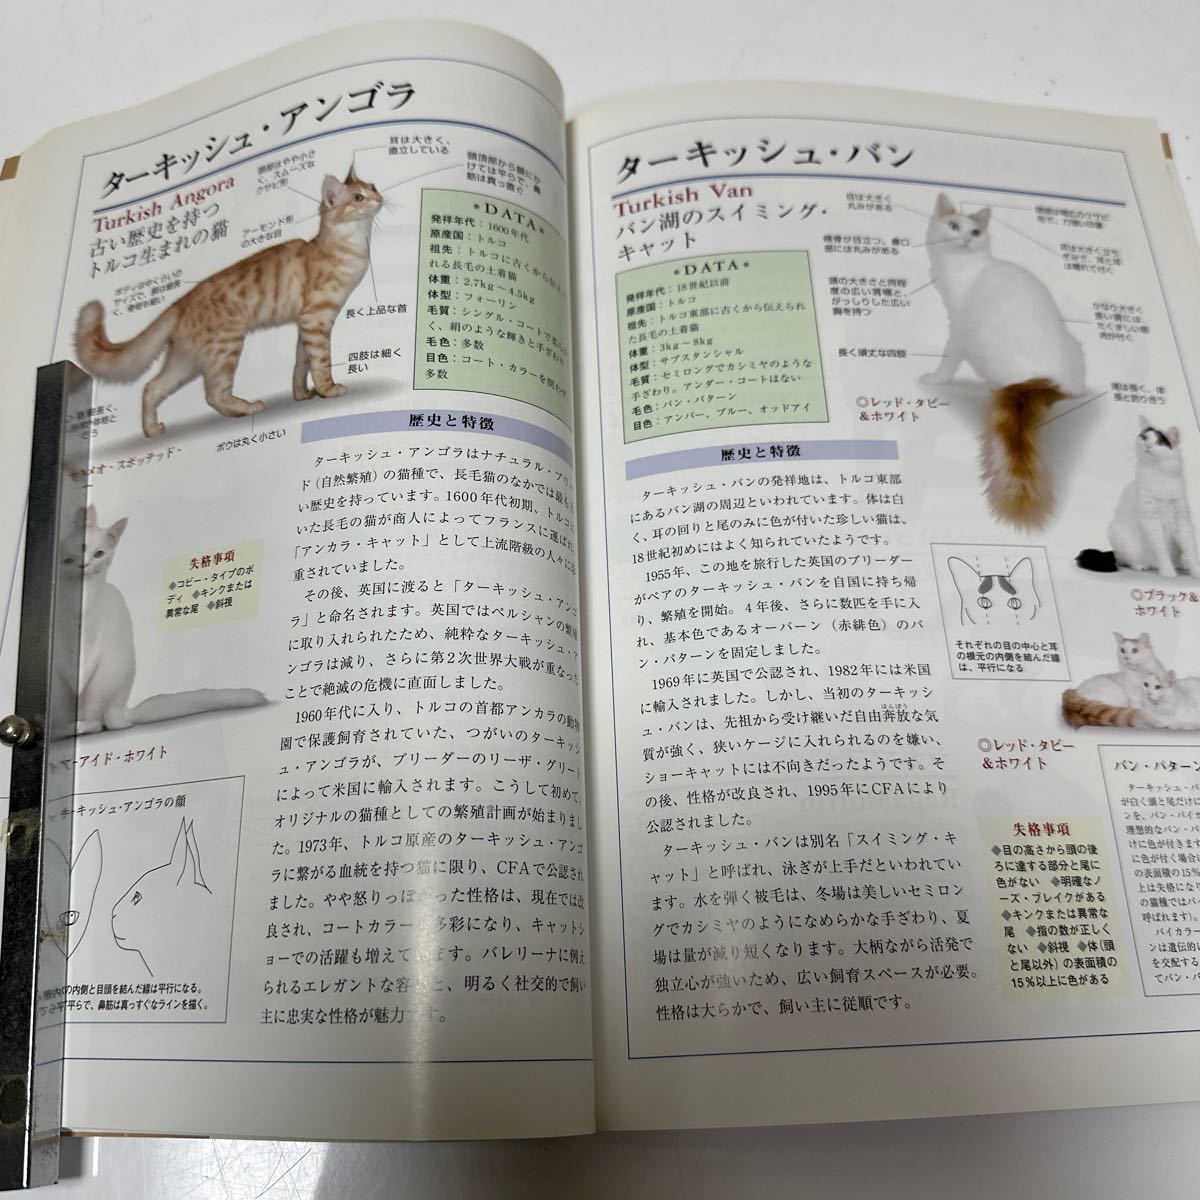 ターキッシュ・アンゴラ
Turkish Angora
古い歴史を持つ
トルコ生まれの猫
頭部はやや小さ
く、スムーズな
クサビ形
耳は大きく、
直立している
頭頂部から額にか
けては平らで、鼻
筋は真っ直ぐ
アーモンド形
の大きな目
長く上品な首
四肢は細く
長い
ボウは丸く小さい
＊DATA＊
発祥年代：1600年代
原産国：トルコ
祖先：トルコに古くから伝え
られる長毛の土着猫
体重：2.7kg～4.5kg
体型：フォーリン
毛質：シングル・コートで柔らか
く、絹のような輝きと手ざわり
毛色：多数
目色：コート・カラーを問わず
多数
歴史と特徴
ターキッシュ・アンゴラはナチュラル・ブリー
ド（自然繁殖）の猫種で、長毛猫のなかでは最も
い歴史を持っています。1600年代初期、トルコに
いた長毛の猫が商人によってフランスに運ばれ、
「アンカラ・キャット」として上流階級の人々に
重されていました。
その後、英国に渡ると「ターキッシュ・アンゴ
ラ」と命名されます。英国ではペルシャンの繁殖
に取り入れられたため、純粋なターキッシュ・ア
ンゴラは減り、さらに第2次世界大戦が重なった
ことで絶滅の危機に直面しました。
1960年代に入り、トルコの首都アンカラの動物
園で保護飼育されていた、つがいのターキッシ
ュ・アンゴラが、ブリーダーのリーザ・グリート
によって米国に輸入されます。こうして初めて、
オリジナルの猫種としての繁殖計画が始まりまし
た。1973年、トルコ原産のターキッシュ・アンゴ
ラに繋がる血統を持つ猫に限り、CFAで公認され
ました。やや怒りっぽかった性格は、現在では改
良され、コートカラーも多彩になり、キャットシ
ョーでの活躍も増えています。バレリーナに例え
られるエレガントな容姿と、明るく社交的で飼い
主に忠実な性格が魅力です。
失格事項
◆コビー・タイプのボ
ディ ◆キンクまたは
異常な尾 ◆斜視
アイド・ホワイト
キッシュ・アンゴラの顔
の内側と目頭を結んだ線は平行になる。
平らで、鼻筋は真っすぐなラインを描く。
ターキッシュ・バン
Turkish Van
バン湖のスイミング・
キャット
＊DATA＊
発祥年代：18世紀以前
原産国：トルコ
祖先：トルコ東部に古くから伝えられ
た長毛の土着猫
体重：3kg～8kg
体型：サブスタンシャル
毛質：セミロングでカシミヤのような
手ざわり。アンダー・コートはない
毛色：バン・パターン
目色：アンバー、ブルー、オッドアイ
目は大きく
丸みがある
頬骨が目立つ。鼻口
部には丸みがある
頭の大きさと同程
度の広い肩幅と、
がっしりした広い
胸を持つ
長く頑丈な四肢
尾は長く、体
長と釣り合う
◎レッド・タビー
＆ホワイト
◎ブラック＆
ホワイト
歴史と特徴
ターキッシュ・バンの発祥地は、トルコ東部
にあるバン湖の周辺といわれています。体は白
く、耳の回りと尾のみに色が付いた珍しい猫は、
18世紀初めにはよく知られていたようです。
1955年、この地を旅行した英国のブリーダー
がペアのターキッシュ・バンを自国に持ち帰
り、繁殖を開始。4年後、さらに数匹を手に入
れ、基本色であるオーバーン（赤緋色）のバ
ン・パターンを固定しました。
1969年に英国で公認され、1982年には米国
に輸入されました。しかし、当初のターキッシ
ュ・バンは、先祖から受け継いだ自由奔放な気
質が強く、狭いケージに入れられるのを嫌い、
ショーキャットには不向きだったようです。そ
の後、性格が改良され、1995年にCFAにより
公認されました。
ターキッシュ・バンは別名「スイミング・キ
ャット」と呼ばれ、泳ぎが上手だといわれてい
ます。水を弾く被毛は、冬場は美しいセミロン
グでカシミヤのようになめらかな手ざわり、夏
場は量が減り短くなります。大柄ながら活発で
独立心が強いため、広い飼育スペースが必要。
性格は大らかで、飼い主に従順です。
それぞれの目の中心と耳
の根元の内側を結んだ線
は、平行になる
◎レッド・タビー
＆ホワイト
失格事項
◆目の高さから頭の後
ろに達する部分と尾に
色がない ◆明確なノ
ーズ・ブレイクがある
◆キンクまたは異常な
尾 ◆指の数が正しく
ない ◆斜視 ◆体（頭
と尾以外）の表面積の
15％以上に色がある
バン・パターン
ターキッシュ・バ